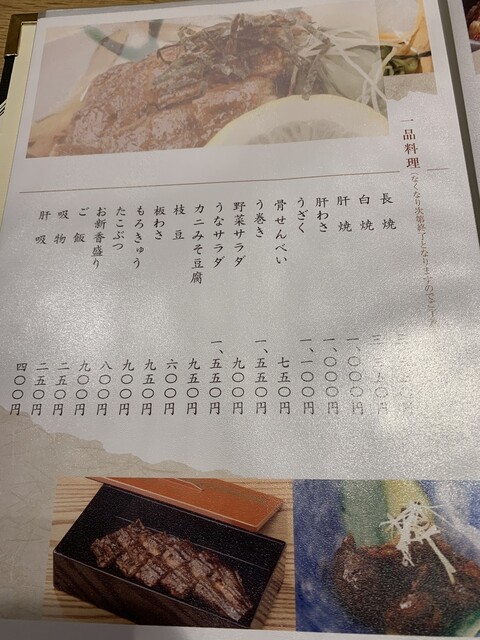 一品料理(なくなり次第終了となりますのでご
長焼
白焼
肝焼 一、〇〇〇円
肝わさ 一、〇〇〇円
うざく 一、一〇〇円
骨せんべい 七五〇円
う巻き 一、五五〇円
野菜サラダ 九〇〇円
うなサラダ 一、五五〇円
カニみそ豆腐 九五〇円
枝豆 六〇〇円
板わさ 九五〇円
もろきゅう 九〇〇円
たこぶつ 八〇〇円
お新香盛り 九〇〇円
ご飯 二五〇円
吸物 二五〇円
肝吸 四〇〇円